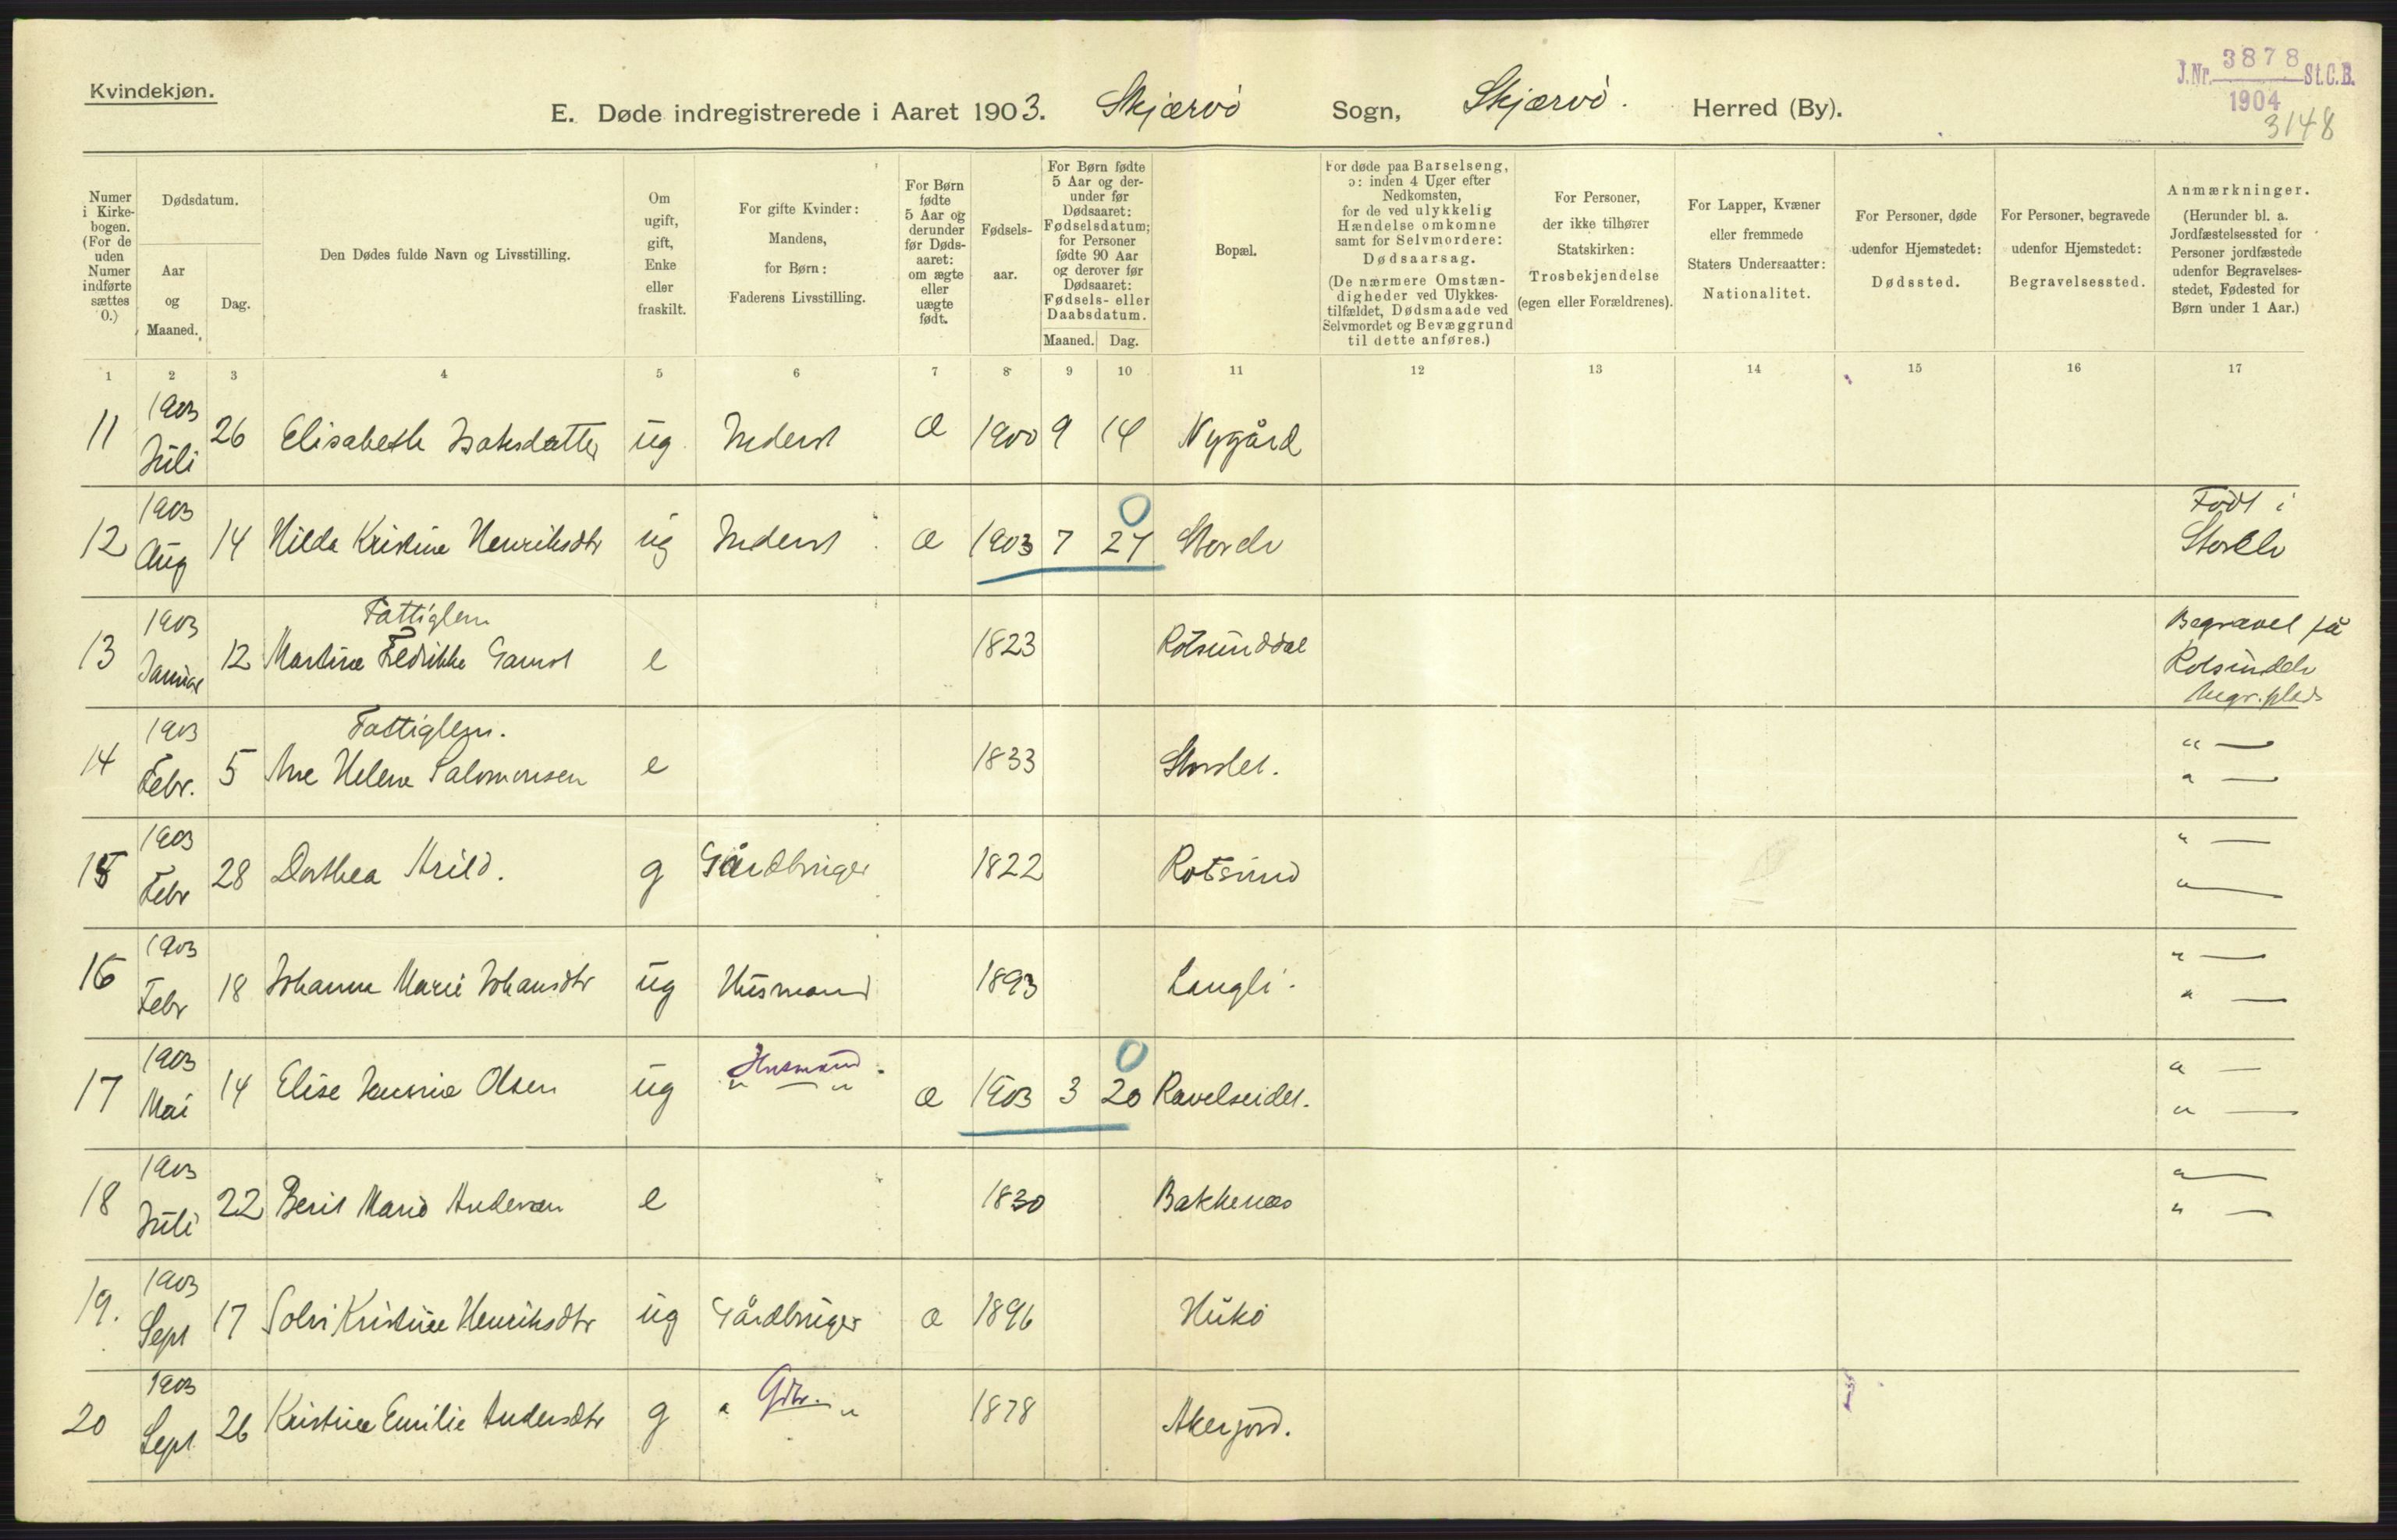 Kvindekjøn.
E. Døde indregistrerede i Aaret 1903. Skjærvö Sogn, Skjærvö. Herred (By).
J.Nr. 3878 St.C.B.
1904
3148
Numer i Kirkebogen. (For de uden Numer indførte sættes 0.)
Dødsdatum.
Aar og Maaned.
Dag.
Den Dødes fulde Navn og Livsstilling.
Om ugift, gift, Enke eller fraskilt.
For gifte Kvinder: Mandens, for Børn: Faderens Livsstilling.
For Børn fødte 5 Aar og derunder før Dødsaaret: om ægte eller uægte født.
Fødselsaar.
For Børn fødte 5 Aar og derunder før Dødsaaret: Fødselsdatum; for Personer fødte 90 Aar og derover før Dødsaaret: Fødsels- eller Daabsdatum.
Maaned. Dag.
Bopæl.
For døde paa Barselseng, ɔ: inden 4 Uger efter Nedkomsten, for de ved ulykkelig Hændelse omkomne samt for Selvmordere: Dødsaarsag.
(De nærmere Omstændigheder ved Ulykkestilfældet, Dødsmaade ved Selvmordet og Bevæggrund til dette anføres.)
For Personer, der ikke tilhører Statskirken: Trosbekjendelse (egen eller Forældrenes).
For Lapper, Kvæner eller fremmede Staters Undersaatter: Nationalitet.
For Personer, døde udenfor Hjemstedet: Dødssted.
For Personer, begravede udenfor Hjemstedet: Begravelsessted.
Anmærkninger. (Herunder bl. a. Jordfæstelsessted for Personer jordfæstede udenfor Begravelsesstedet, Fødested for Børn under 1 Aar.)
1 2 3 4 5 6 7 8 9 10 11 12 13 14 15 16 17
11 1903 Juli 26 Elisabeth Isaksdatter ug Inderst Æ 1900 9 14 Nygård
12 1903 Aug 14 Hilda Kristine Henriksdtr ug Inderst Æ 1903 7 27 0 Storelv Født i Storelv
13 1903 Januar 12 Fattiglem Martine Fredrikke Gamst e 1823 Rotsunddal Begravet på Rotsundelv begr.plads
14 1903 Febr. 5 Fattiglem. Ane Helene Salomonsen e 1833 Storslet. " — " —
15 1903 Febr 28 Dorthea Arild. g Gårdbruger 1822 Rotsund " — " —
16 1903 Febr 18 Johanne Marie Johansdtr ug Husmand 1893 Langli. " — " —
17 1903 Mai 14 Elise Olsen ug Husmand. " — " æ 1903 3 20 0 Ravelseidet. " — " —
18 1903 Juli 22 Berit Marie Andersen e 1830 Bakkenæs " — " —
19. 1903 Sept 17 Solvi Kristine Henriksdtr ug Gårdbruger æ 1896 Hukö
20 1903 Sept 26 Kristine Emilie Andersdtr g " Gbr. " 1878